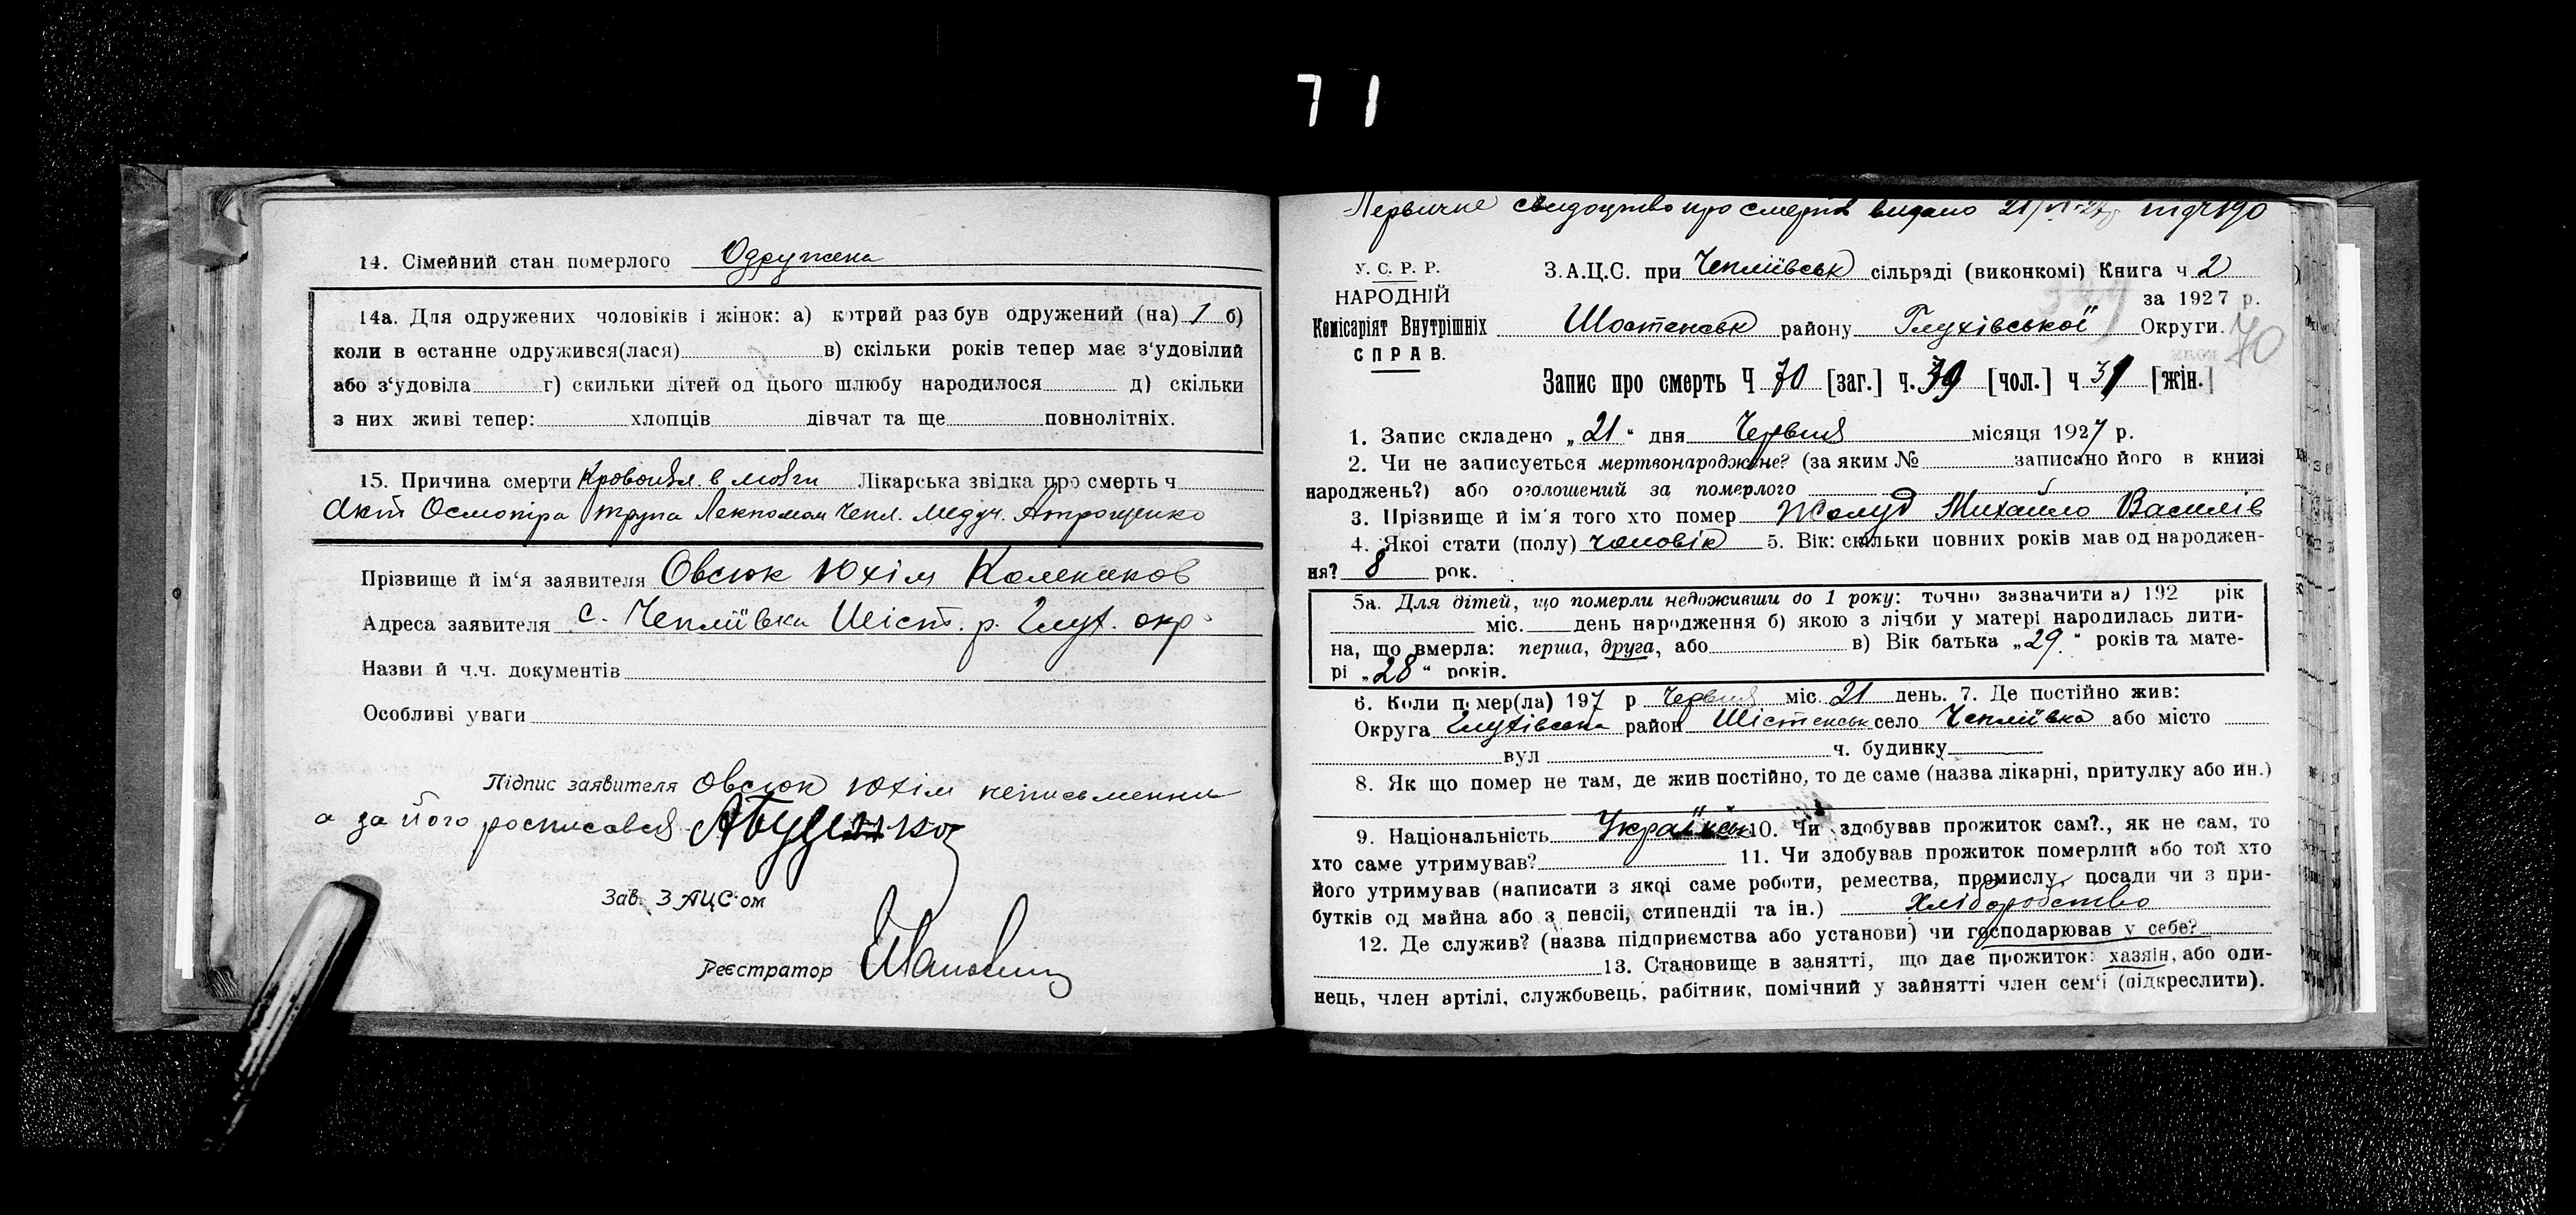 71
14. Сімейний стан померлого Одружена
14а. Для одружених чоловіків і жінок: а) котрий раз був одружений (на) 1 б)
коли в останне одружився(лася) в) скільки років тепер має з'удовілий
або з'удовіла г) скильки дітей од цього шлюбу народилося д) скільки
з них живі тепер: хлопців дівчат та ще повнолітніх.
15. Причина смерти Кровоизл. в мозги Лікарська звідка про смерть ч
Акт Осмотра трупа Лекпомом Чепл. Медуч. Атрощенко
Прізвище й ім'я заявителя Овсюк Юхім
Адреса заявителя с. Чепліївка Шіст. р. Глух. окр.
Назви й ч.ч. документів
Особливі уваги
Підпис заявителя Овсюк Юхім неписьменни
а за його росписався
Зав. ЗАЦС-ом
Реєстратор
Первичне свидоцтво про смерть видано 21/VI-27р
У. С. Р. Р. З.А.Ц.С. при Чепліївськ сільраді (виконкомі) Книга ч 2
НАРОДНІЙ за 1927 р.
Комісаріят Внутрішніх Шостенськ району Глухівської Округи. 70
СПРАВ.
Запис про смерть Ч 70 [заг.] ч. 39 [чол.] ч 31 [жін.]
1. Запис складено „21" дня Червня місяця 1927 р.
2. Чи не записуеться мертвонароджене? (за яким № записано його в книзі
народжень?) або оголошений за померлого
3. Прізвище й ім'я того хто помер Жолуд Михайло Василів
4. Якоі стати (полу) чоловік 5. Вік: скільки повних років мав од народжен-
ня? 8 рок.
5а. Для дітей, що померли недоживши до 1 року: точно зазначити а) 192 рік
міс. день народження б) якою з лічби у матері народилась дити-
на, що вмерла: перша, друга, або в) Вік батька „29" років та мате-
рі „28" років.
6. Коли помер(ла) 197 р Червня міс. 21 день. 7. Де постійно жив:
Округа Глухівська район Шістенськ село Чепліївка або місто
вул ч. будинку
8. Як що помер не там, де жив постійно, то де саме (назва лікарні, притулку або ин.)
9. Національність Українськ 10. Чи здобував прожиток сам?., як не сам, то
хто саме утримував? 11. Чи здобував прожиток померлий або той хто
його утримував (написати з якоі саме роботи, ремества, промислу, посади чи з при-
бутків од майна або з пенсіі, стипендіі та ін.) Хліборобство
12. Де служив? (назва підприємства або установи) чи господарював у себе?
13. Становище в занятті, що дає прожиток: хазяін, або оди-
нець, член артілі, службовець, рабітник, помічний у зайнятті член сем'ї (підкреслити).